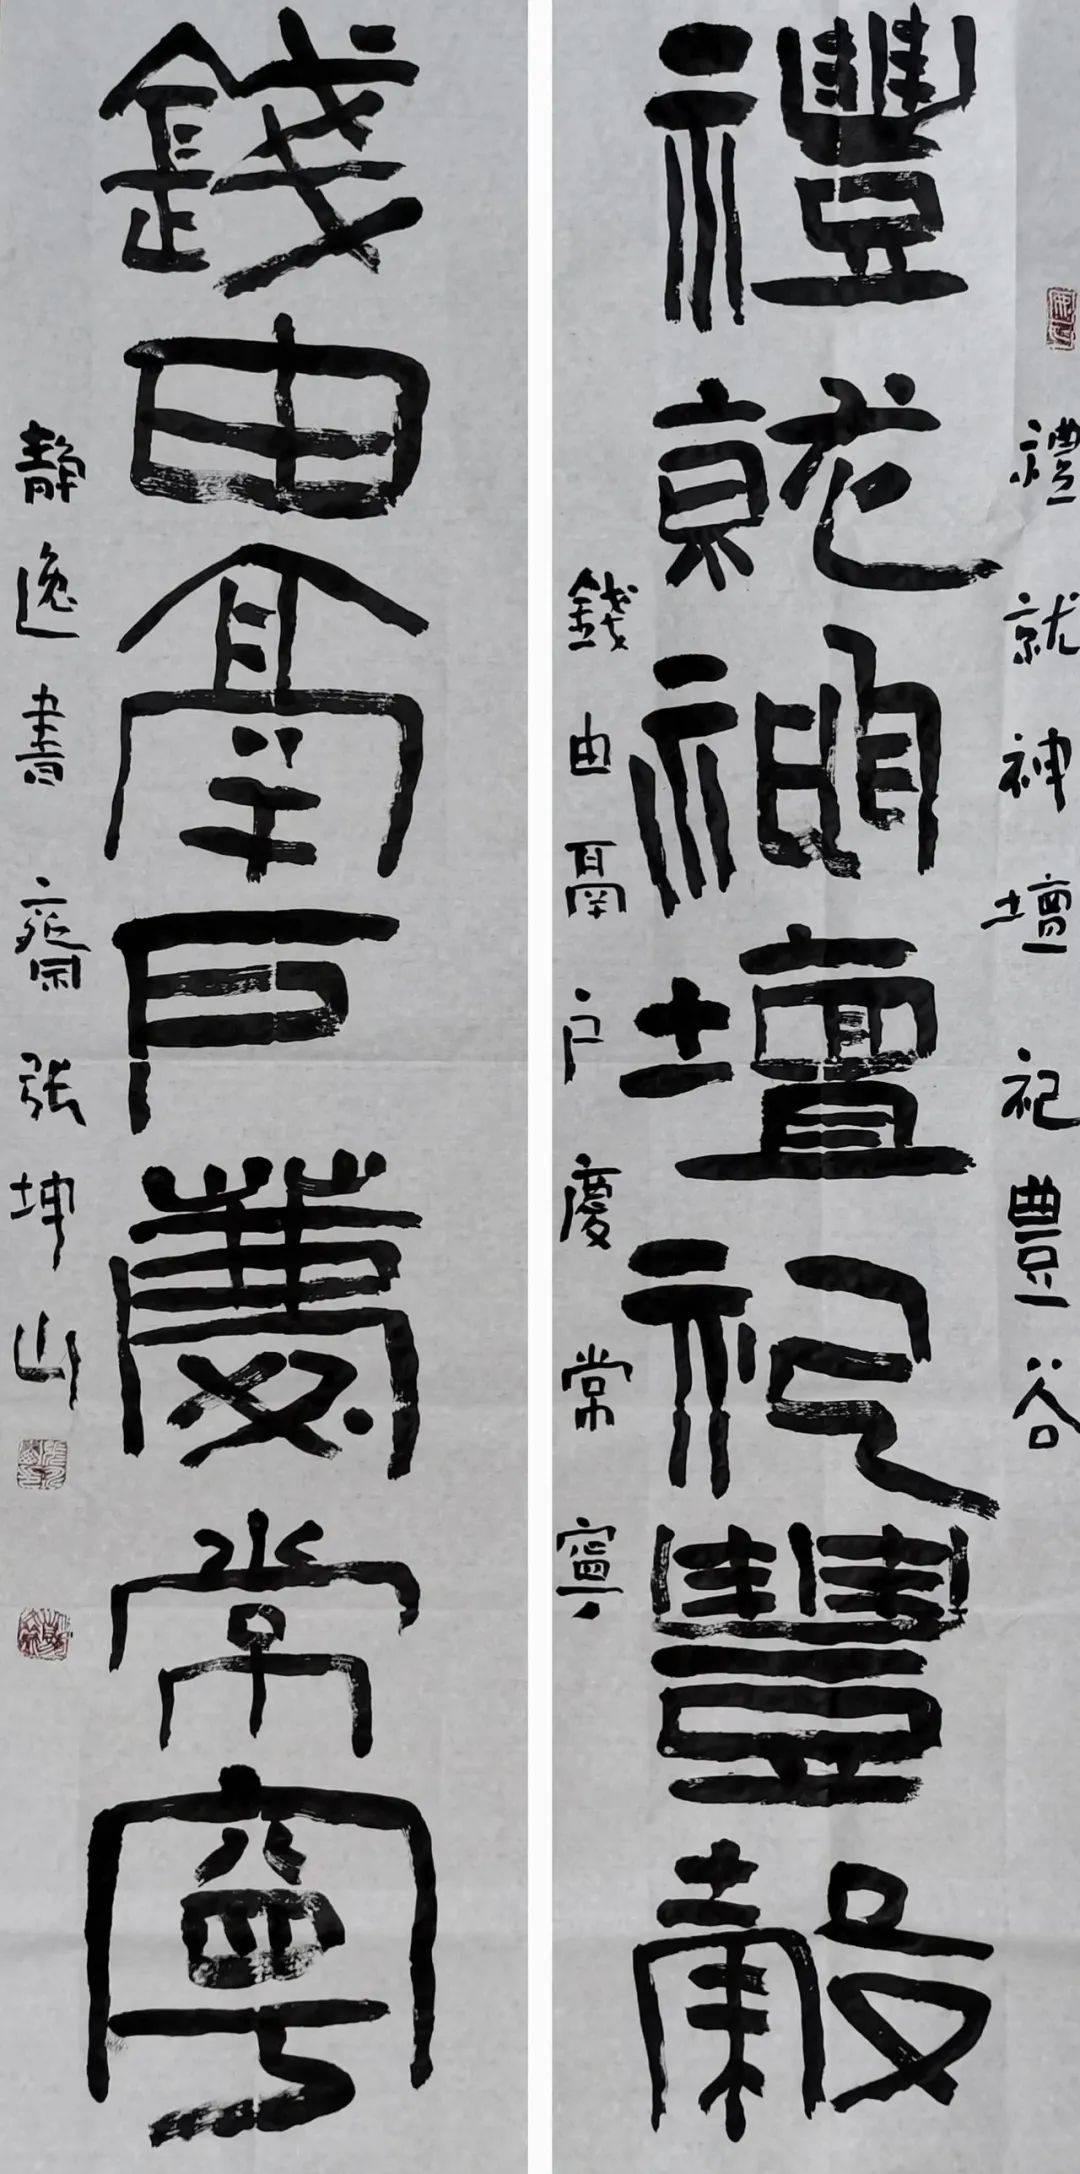 禮就神壇祀豊谷
禮就神壇祀豐穀
錢由鬲户慶常寧
錢由鬲户慶常寧
静逸書齋张坤山